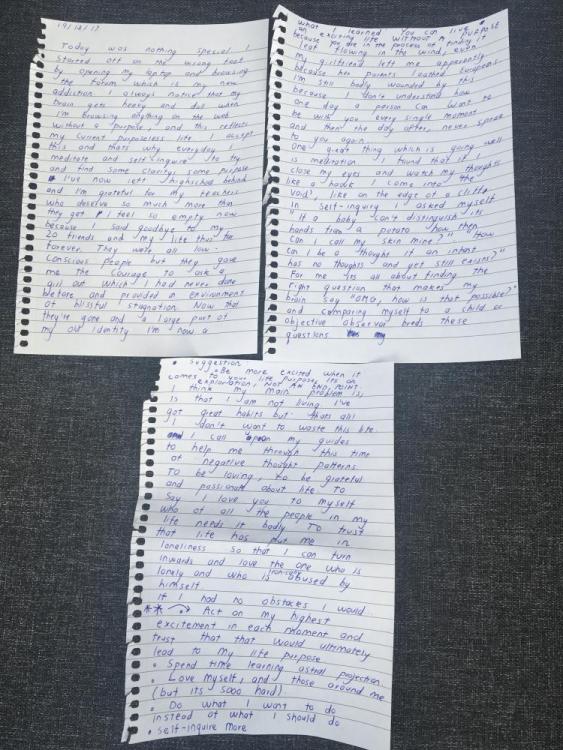 19/12/17
Today was nothing special I
started off on the wrong foot
by opening my laptop and browsing
the forum which is my new
addiction I always notice that my
brain gets heavy and dull when
I'm browsing anything on the web
without a purpose, and this reflects
my current purposeless life I accept
this and thats why everyday I
meditate and self-inquire to try
and find some clarity, some purpose
I've now left highschool behind
and I'm grateful for my teachers
who deserve so much more than
they get I feel so empty now
because I said goodbye to my
20 friends and my life thus far
forever. They were all low-
conscious people but they gave
me the courage to ask a
girl out which I had never done
before and provided an environment
of blissful stagnation. Now that
they're gone and a large part of
my old identity I'm now a
leaf flowing in the wind, even
my girlfriend left me apparently
because her parents loathed Europeans.
I'm still badly wounded by this
because I don't understand how
one day a person can want to
be with you every single moment
and then the day after, never speak
to you again.
One great thing which is going well
is meditation I found that if I
close my eyes and watch my thoughts
like a hawk I come into the
void, like on the edge of a cliff.
In self-inquiry I asked myself
"If a baby can't distinguish its
hands from a potato how then
can I call my skin mine?" "How
can I be a thought if an infant
has no thoughts and yet still exists?"
For me its all about finding the
right question that makes my
brain say "OMG, how is that possible?"
and comparing myself to a child or
objective observer breeds these
questions
What I learned You can live
an exciting life without a purpose
because you are in the process of finding it
• suggestion
•Be more excited when it
comes to your life purpose, its an
exploration, NOT AN END POINT.
I think my main problem is,
is that I am not living I've
got great habits but thats all
I don't want to waste this life
and I call upon my guides
to help me through this time
of negative thought patterns
To be loving, to be grateful
and passionate about life To
say I love you to myself
who of all the people in my
life needs it badly To trust
that life has put me in
loneliness so that I can turn
inwards and love the one who is
lonely and who is abused by
himself
If I had no obstacles I would
** → • Act on my highest
excitement in each moment and
trust that that would ultimately
lead to my life purpose
• Spend time learning astral projection
• Love myself, and those around me
(but its sooo hard)
• Do what I want to do
instead of what I should do
• self-inquire more